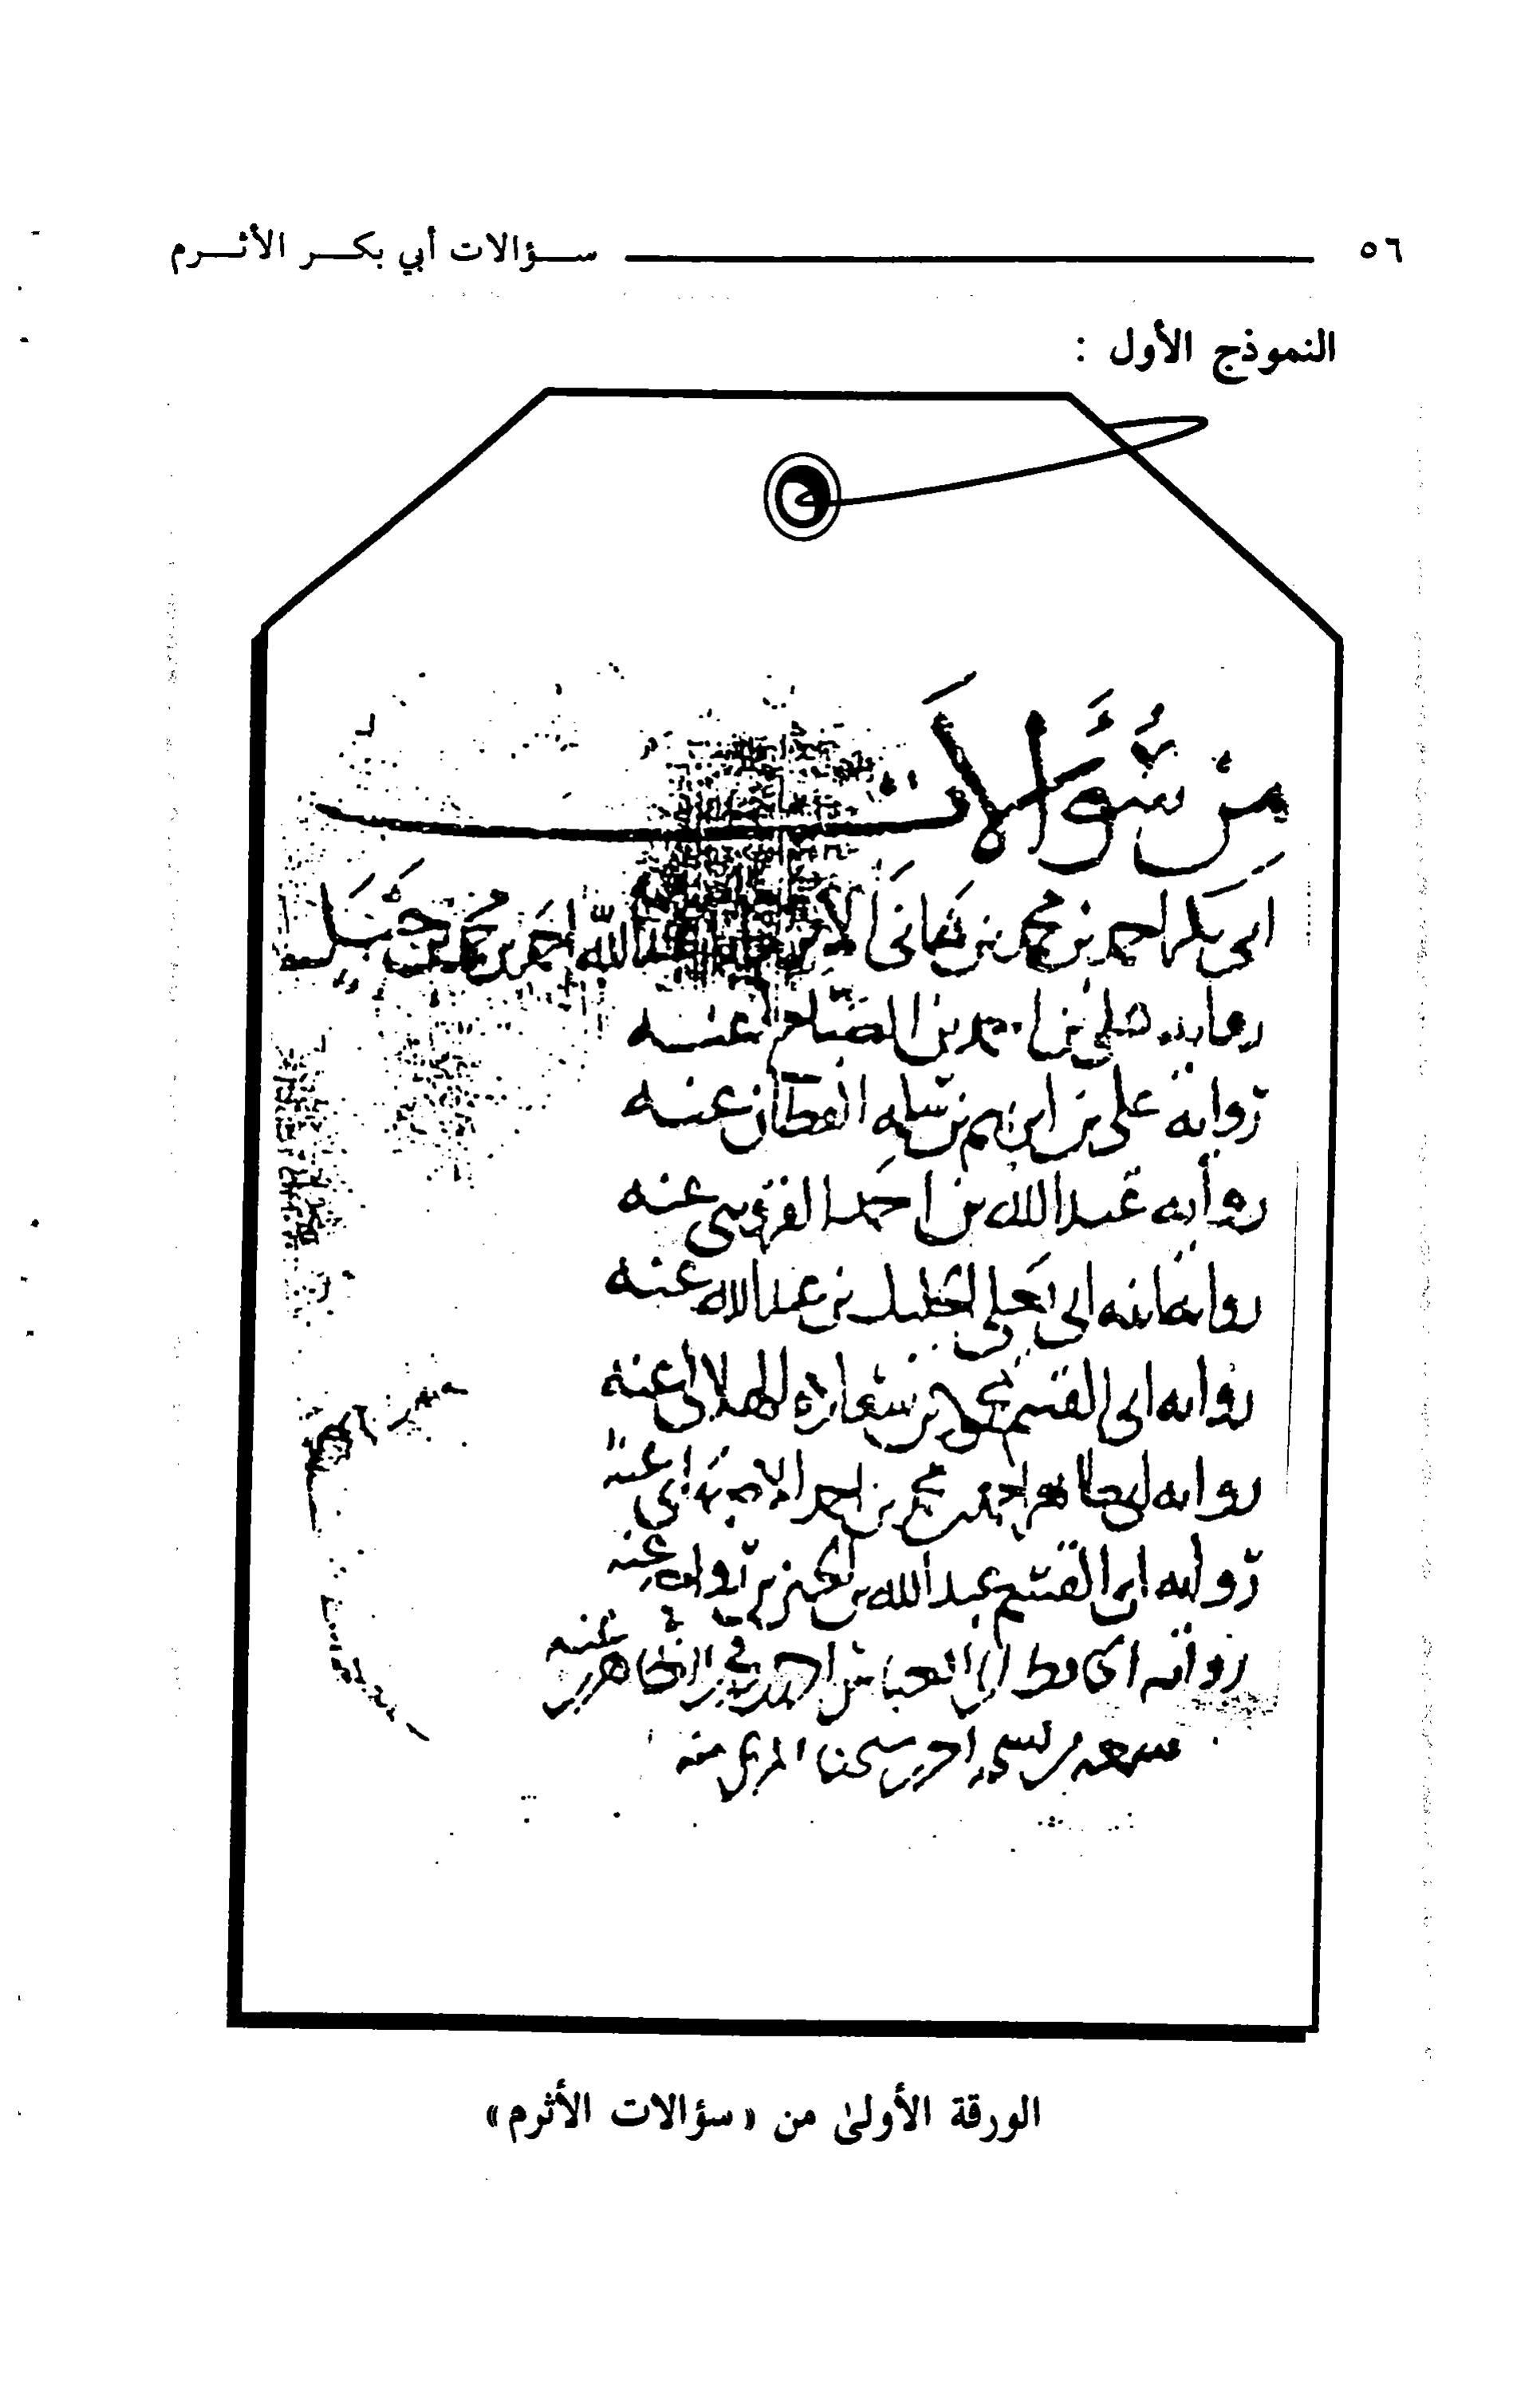 ٥٦ سؤالات أبي بكر الأثرم
النموذج الأول :
مِنْ سُؤَالَات
ابى بكر احمد بن محمد بن هانى الاثرم عبدالله احمد بن محمد بن حنبل
رواية على بن احمد بن الصباح عنه
رواية على بن ابرهيم بن سلمه القطان عنه
رواية عبدالله بن احمد القزويني عنه
رواية ابى يعلى الخليل بن عبدالله عنه
رواية ابى القسم الهلالى عنه
رواية ابى طاهر احمد بن محمد بن احمد الاصبهانى عنه
رواية ابى القسم عبدالله بن الحسين بن رواحه عنه
رواية الحافظ ابى العباس احمد بن الظاهرى عنه
سمعه
الورقة الأولىٰ من « سؤالات الأثرم »